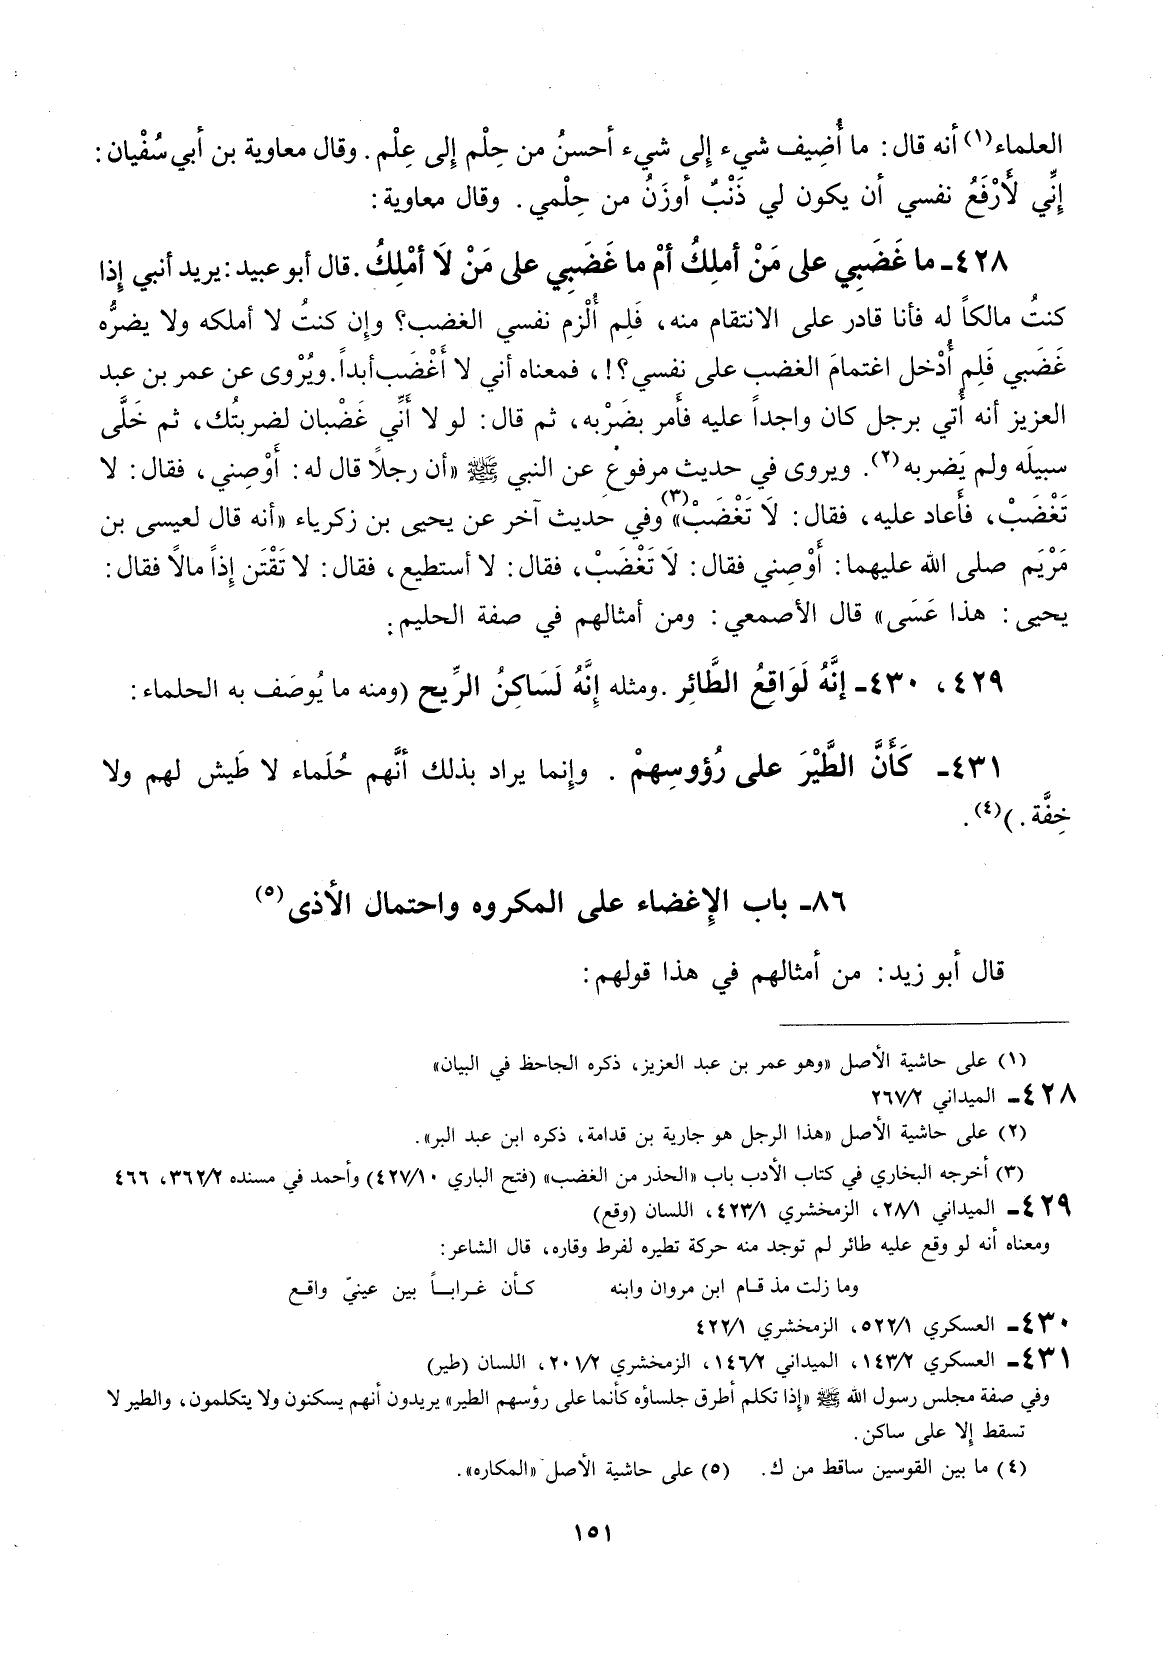 العلماء(١) أنه قال: ما أُضِيف شيء إلى شيء أحسنُ من حِلْم إلى عِلْم. وقال معاوية بن أبي سُفْيان:
إنِّي لأَرْفَعُ نفسي أن يكون لي ذَنْبٌ أوزَنُ من حِلْمي. وقال معاوية:
٤٢٨ـ ما غَضَبِي على مَنْ أملِكُ أمْ ما غَضَبِي على مَنْ لَا أمْلِكُ. قال أبو عبيد: يريد أنبي إذا
كنتُ مالكاً له فأنا قادر على الانتقام منه، فَلِم أُلْزم نفسي الغضب؟ وإن كنتُ لا أملكه ولا يضرُّه
غَضَبي فَلِم أُدْخل اغتمامَ الغضب على نفسي؟!، فمعناه أني لا أَغْضَب أبداً. ويُرْوى عن عمر بن عبد
العزيز أنه أُتي برجل كان واجداً عليه فأمر بضَرْبه، ثم قال: لو لا أنِّي غَضْبان لضربتُك، ثم خَلَّى
سبيلَه ولم يَضربه(٢). ويروى في حديث مرفوع عن النبي ﷺ «أن رجلاً قال له: أَوْصِني، فقال: لا
تَغْضَبْ، فأعاد عليه، فقال: لَا تَغْضَبْ»(٣) وفي حديث آخر عن يحيى بن زكرياء «أنه قال لعيسى بن
مَرْيَم صلى الله عليهما: أَوْصِني فقال: لَا تَغْضَبْ، فقال: لا أستطيع، فقال: لا تَقْتَن إذاً مالاً فقال:
يحيى: هذا عَسَى» قال الأصمعي: ومن أمثالهم في صفة الحليم:
٤٢٩، ٤٣٠ـ إنَّهُ لَوَاقِعُ الطَّائِر. ومثله إنَّهُ لَسَاكِنُ الرِّيح (ومنه ما يُوصَف به الحلماء:
٤٣١ـ كَأَنَّ الطَّيْرَ على رُؤوسِهِمْ. وإنما يراد بذلك أنَّهم حُلَماء لا طَيش لهم ولا
خِفَّة.)(٤).
٨٦ـ باب الإغضاء على المكروه واحتمال الأذى(٥)
قال أبو زيد: من أمثالهم في هذا قولهم:
(١) على حاشية الأصل «وهو عمر بن عبد العزيز، ذكره الجاحظ في البيان»
٤٢٨ـ الميداني ٢٦٧/٢
(٢) على حاشية الأصل «هذا الرجل هو جارية بن قدامة، ذكره ابن عبد البر».
(٣) أخرجه البخاري في كتاب الأدب باب «الحذر من الغضب» (فتح الباري ٤٢٧/١٠) وأحمد في مسنده ٣٦٢/٢، ٤٦٦
٤٢٩ـ الميداني ٢٨/١، الزمخشري ٤٢٣/١، اللسان (وقع)
ومعناه أنه لو وقع عليه طائر لم توجد منه حركة تطيره لفرط وقاره، قال الشاعر:
وما زلت مذ قام ابن مروان وابنه كأن غراباً بين عينيّ واقع
٤٣٠ـ العسكري ٥٢٢/١، الزمخشري ٤٢٢/١
٤٣١ـ العسكري ١٤٣/٢، الميداني ١٤٦/٢، الزمخشري ٢٠١/٢، اللسان (طير)
وفي صفة مجلس رسول الله ﷺ «إذا تكلم أطرق جلساؤه كأنما على رؤسهم الطير» يريدون أنهم يسكنون ولا يتكلمون، والطير لا
تسقط إلا على ساكن.
(٤) ما بين القوسين ساقط من ك. (٥) على حاشية الأصل «المكاره».
١٥١